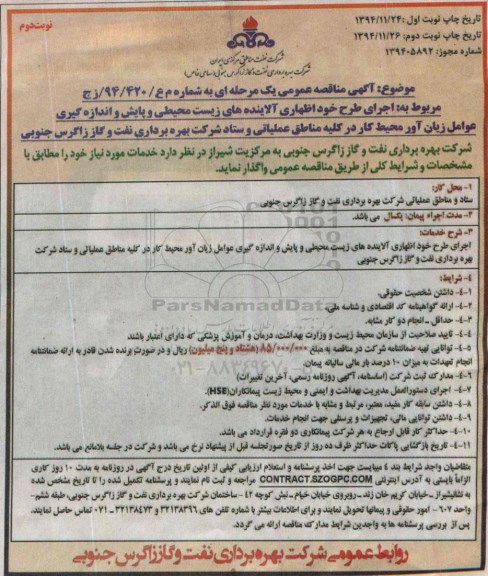 نوبت دوم
تاریخ چاپ نوبت اول: ۱۳۹۴/۱۱/۲۴
تاریخ چاپ نوبت دوم: ۱۳۹۴/۱۱/۲۶
شماره مجوز: ۱۳۹۴۰۵۸۹۲
شرکت نفت مناطق مرکزی ایران
شرکت بهره برداری نفت و گاز زاگرس جنوبی (سهامی خاص)
موضوع: آگهی مناقصه عمومی یک مرحله ای به شماره م ع/۹۴/۴۲۰/ز ج
مربوط به: اجرای طرح خود اظهاری آلاینده های زیست محیطی و پایش و اندازه گیری
عوامل زیان آور محیط کار در کلیه مناطق عملیاتی و ستاد شرکت بهره برداری نفت و گاز زاگرس جنوبی
شرکت بهره برداری نفت و گاز زاگرس جنوبی به مرکزیت شیراز در نظر دارد خدمات مورد نیاز خود را مطابق با
مشخصات و شرایط کلی از طریق مناقصه عمومی واگذار نماید.
۱- محل کار:
ستاد و مناطق عملیاتی شرکت بهره برداری نفت و گاز زاگرس جنوبی
۲- مدت اجراء پیمان: یکسال می باشد.
۳- شرح خدمات:
اجرای طرح خود اظهاری آلاینده های زیست محیطی و پایش و اندازه گیری عوامل زیان آور محیط کار در کلیه مناطق عملیاتی و ستاد شرکت
بهره برداری نفت و گاز زاگرس جنوبی
ParsNamadData
۴- شرایط:
۴-۱- داشتن شخصیت حقوقی.
۴-۲- ارائه گواهینامه کد اقتصادی و شناسه ملی.
۴-۳- حداقل انجام دو کار مشابه.
۴-۴- تایید صلاحیت از سازمان محیط زیست و وزارت بهداشت، درمان و آموزش پزشکی که دارای اعتبار باشند
۴-۵- توانایی تهیه ضمانتنامه شرکت در مناقصه به مبلغ ۸۵/۰۰۰/۰۰۰ (هشتاد و پنج میلیون) ریال و در صورت برنده شدن قادر به ارائه ضمانتنامه
انجام تعهدات به میزان ۱۰ درصد بار مالی سالیانه پیمان.
۴-۶- مدارک ثبت شرکت (اساسنامه، آگهی روزنامه رسمی، آخرین تغییرات)
۴-۷- اجرای دستورالعمل مدیریت بهداشت و ایمنی و محیط زیست پیمانکاران(HSE).
۴-۸- داشتن سابقه کار مفید، معتبر، مرتبط و مشابه با خدمات مورد نظر مناقصه فوق الذکر.
۴-۹- داشتن توانایی مالی، تجهیزات و پرسنلی جهت انجام خدمات.
۴-۱۰- حداکثر کار قابل ارجاع به هر شرکت پیمانکاری دو فقره قرارداد می باشد.
۴-۱۱- تاریخ بازگشایی پاکات حداکثر ظرف ده روز از تاریخ صورتجلسه قبل از پیشنهاد نرخ می باشد و شرکت در جلسه بلامانع می باشد.
متقاضیان واجد شرایط بند ۴ میبایست جهت اخذ پرسشنامه و استعلام ارزیابی کیفی از اولین تاریخ درج آگهی در روزنامه به مدت ۱۰ روز کاری
الزاماً بایستی به آدرس اینترنتی CONTRACT.SZOGPC.COM مراجعه و ثبت نام نمایند و پرسشنامه تکمیل شده را تا تاریخ مشخص شده
به نشانی شیراز - خیابان کریم خان زند - روبروی خیابان خیام - نبش کوچه ۴۲ - ساختمان شرکت بهره برداری نفت و گاز زاگرس جنوبی، طبقه ششم-
واحد ۶۰۷ - امور حقوقی و پیمانها تحویل نمایند و برای اطلاعات بیشتر با شماره تلفن های ۳۲۱۳۸۳۹۶ و ۳۲۱۳۸۴۷۳ - ۰۷۱ تماس حاصل نمایند.
پس از بررسی پرسشنامه ها به واجدین شرایط مدارک مناقصه ارائه می گردد.
روابط عمومی شرکت بهره برداری نفت و گاز زاگرس جنوبی